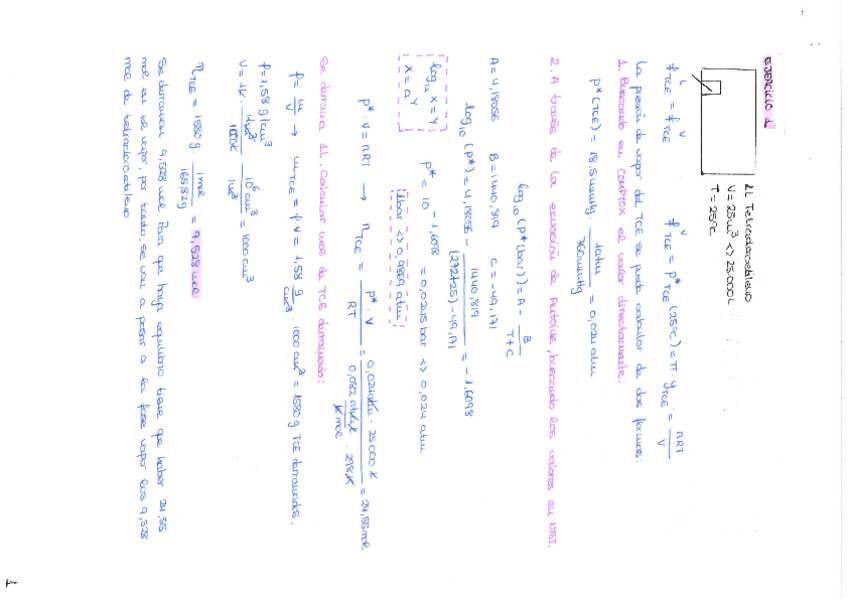 EJERCICIO 1
1L Tetracloroetileno
V = 25 m³ <> 25.000 L
T = 25ºC
f^L_TCE = f^V_TCE    f^V_TCE = P*_TCE (25ºC) = π · y_TCE = nRT / V
La presión de vapor del TCE se puede calcular de dos formas:
1. Buscando en COMPTOX el valor directamente.
P* (TCE) = 18,5 mmHg · 1 atm / 760 mmHg = 0,024 atm
2. A través de la ecuación de Antoine, buscando los valores en NIST.
log₁₀ (P* (bar)) = A - B / T + C
A = 4,18056   B = 1440,819   C = -49,171
log₁₀ (P*) = 4,18056 - 1440,819 / (272+25) - 49,171 = -1,6098
logₐ x = y
x = a^y
P* = 10^-1,6098 = 0,0245 bar <> 0,024 atm
1 bar <> 0,9869 atm
P* · V = nRT → n_TCE = P* · V / RT = 0,024 atm · 25.000 L / 0,082 atm L / K mol · 298 K = 24,55 mol
Se derrama 1L. Calcular mol de TCE derramado:
ρ = m / V → m_TCE = ρ V = 1,58 g / cm³ · 1000 cm³ = 1580 g TCE derramados.
ρ = 1,58 g/cm³
V = 1L · 1 m³ / 1000 L · 10⁶ cm³ / 1 m³ = 1000 cm³
n_TCE = 1580 g · 1 mol / 165,82 g = 9,528 mol
Se derraman 9,528 mol. Para que haya equilibrio tiene que haber 24,55
mol en el vapor, por tanto, se van a pasar a la fase vapor los 9,528
mol de tetracloroetileno.
1